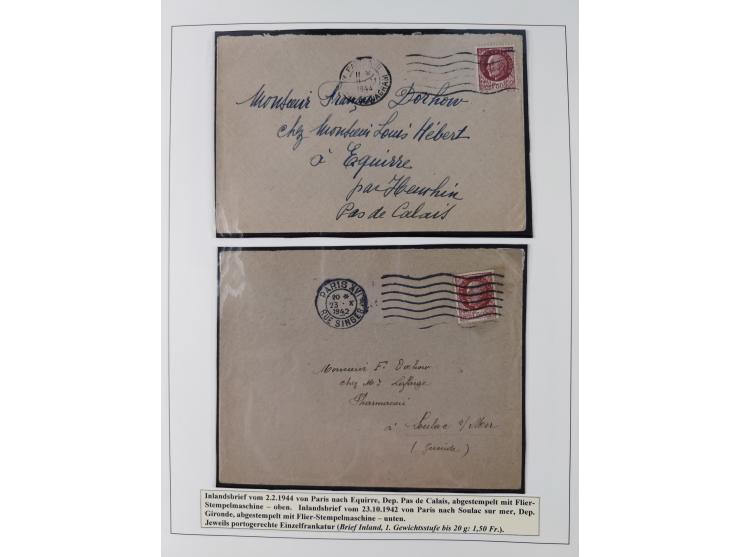 11
1944
Monsieur François Dorhow
chez Monsieur Louis Hébert
à Equirre
par Heuchin
Pas de Calais
PARIS XVI
20 *
23 - X
1942
RUE SINGER
Monsieur F. Dorhow
chez Mr Lafarge
Pharmacien
à Soulac s/Mer
(Gironde)
Inlandsbrief vom 2.2.1944 von Paris nach Equirre, Dep. Pas de Calais, abgestempelt mit Flier-
Stempelmaschine – oben. Inlandsbrief vom 23.10.1942 von Paris nach Soulac sur mer, Dep.
Gironde, abgestempelt mit Flier-Stempelmaschine – unten.
Jeweils portogerechte Einzelfrankatur (Brief Inland, 1. Gewichtsstufe bis 20 g: 1,50 Fr.).